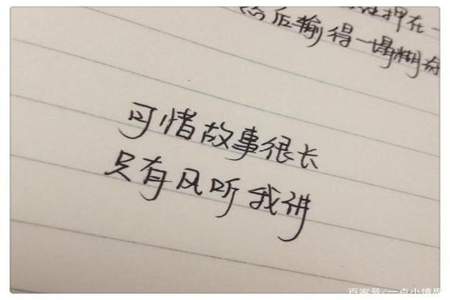 押在一
然后输得一塌糊
可惜故事很长
只有风听我讲
百家号